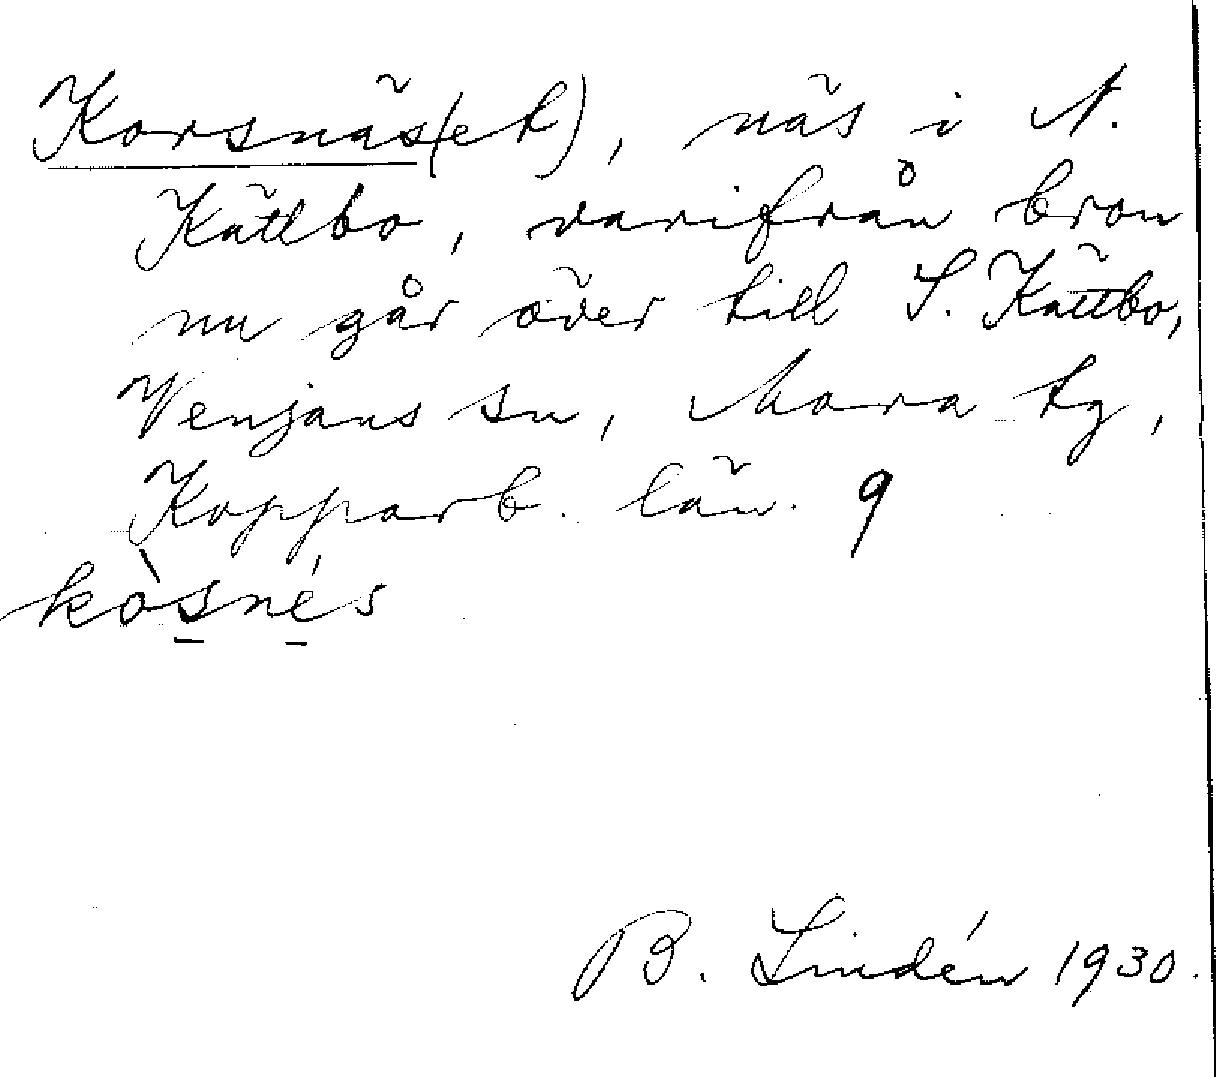 Korsnäs(et), näs i N.
Kättbo, varifrån bron
nu går över till S. Kättbo,
Venjans sn, Mora tg,
Kopparb. län. 9
kòsnés
B. Lindén 1930.